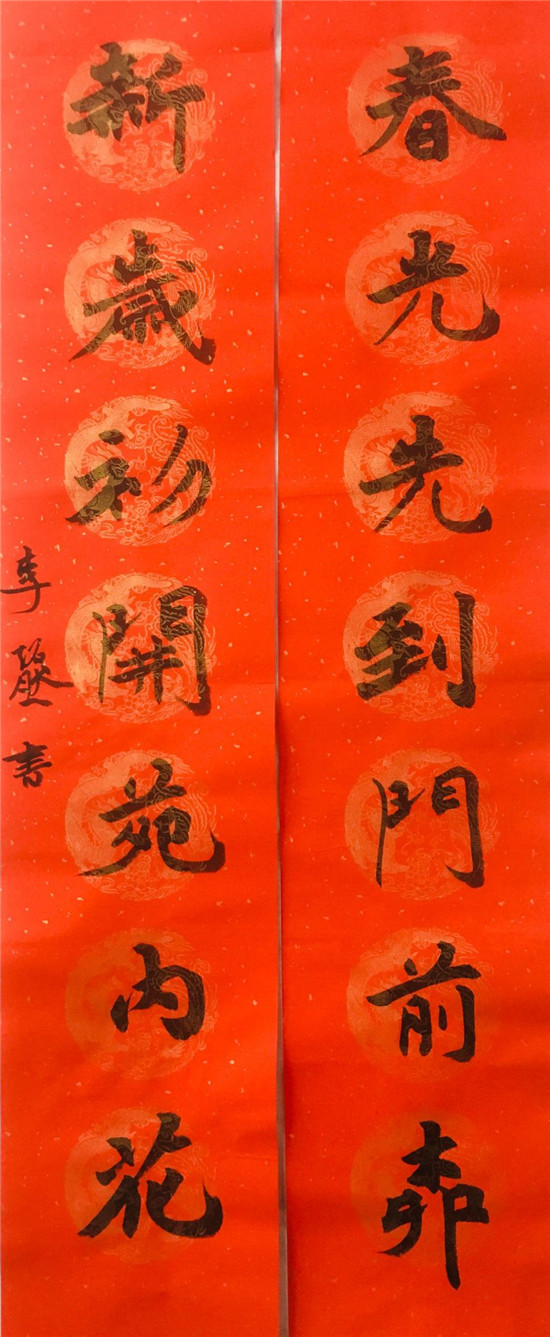 春光先到門前柳
新歲初開苑内花
李 書